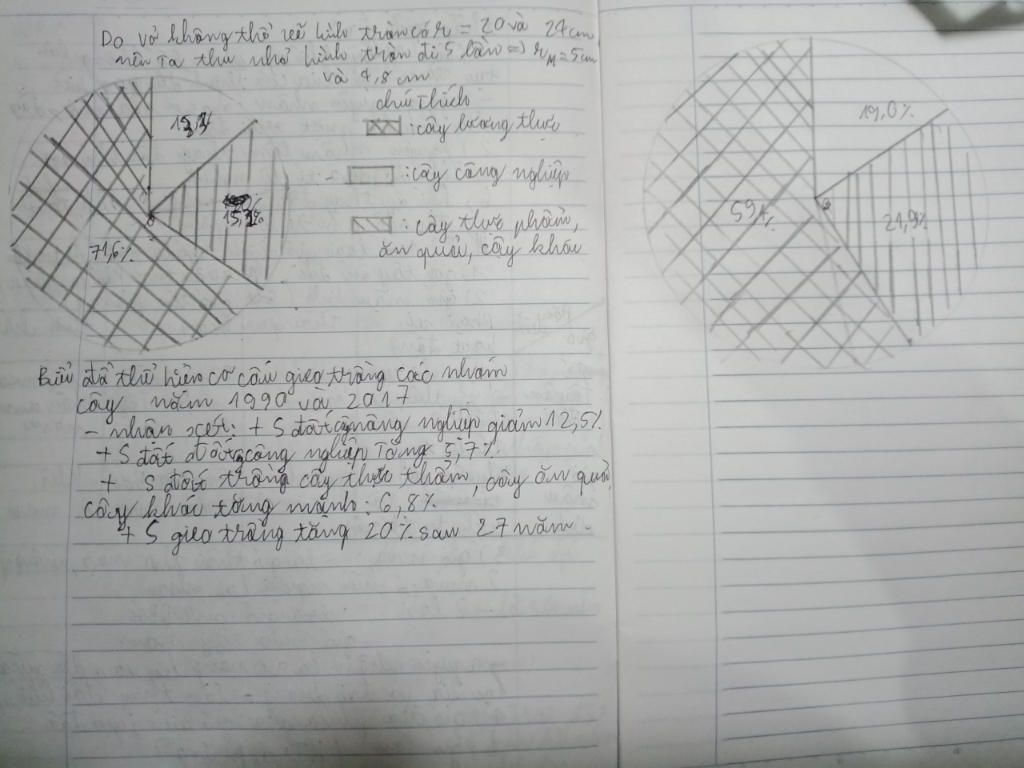 Do vở không thể vẽ hình tròn có r = 20 và 24 cm
nên ta thu nhỏ hình tròn đi 5 lần => r
và 4,8 cm
chú thích
: cây lương thực
: cây công nghiệp
: cây thực phẩm,
ăn quả, cây khác
71,6%
19,0%
59,1%
21,9%
Biểu đồ thể hiện cơ cấu gieo trồng các nhóm
cây năm 1990 và 2017
- nhận xét: + S đất nông nghiệp giảm 12,5%
+ S đất công nghiệp tăng 5,7%
+ S đất trồng cây thực phẩm, cây ăn quả,
cây khác tăng mạnh: 6,8%
+ S gieo trồng tăng 20% sau 27 năm.